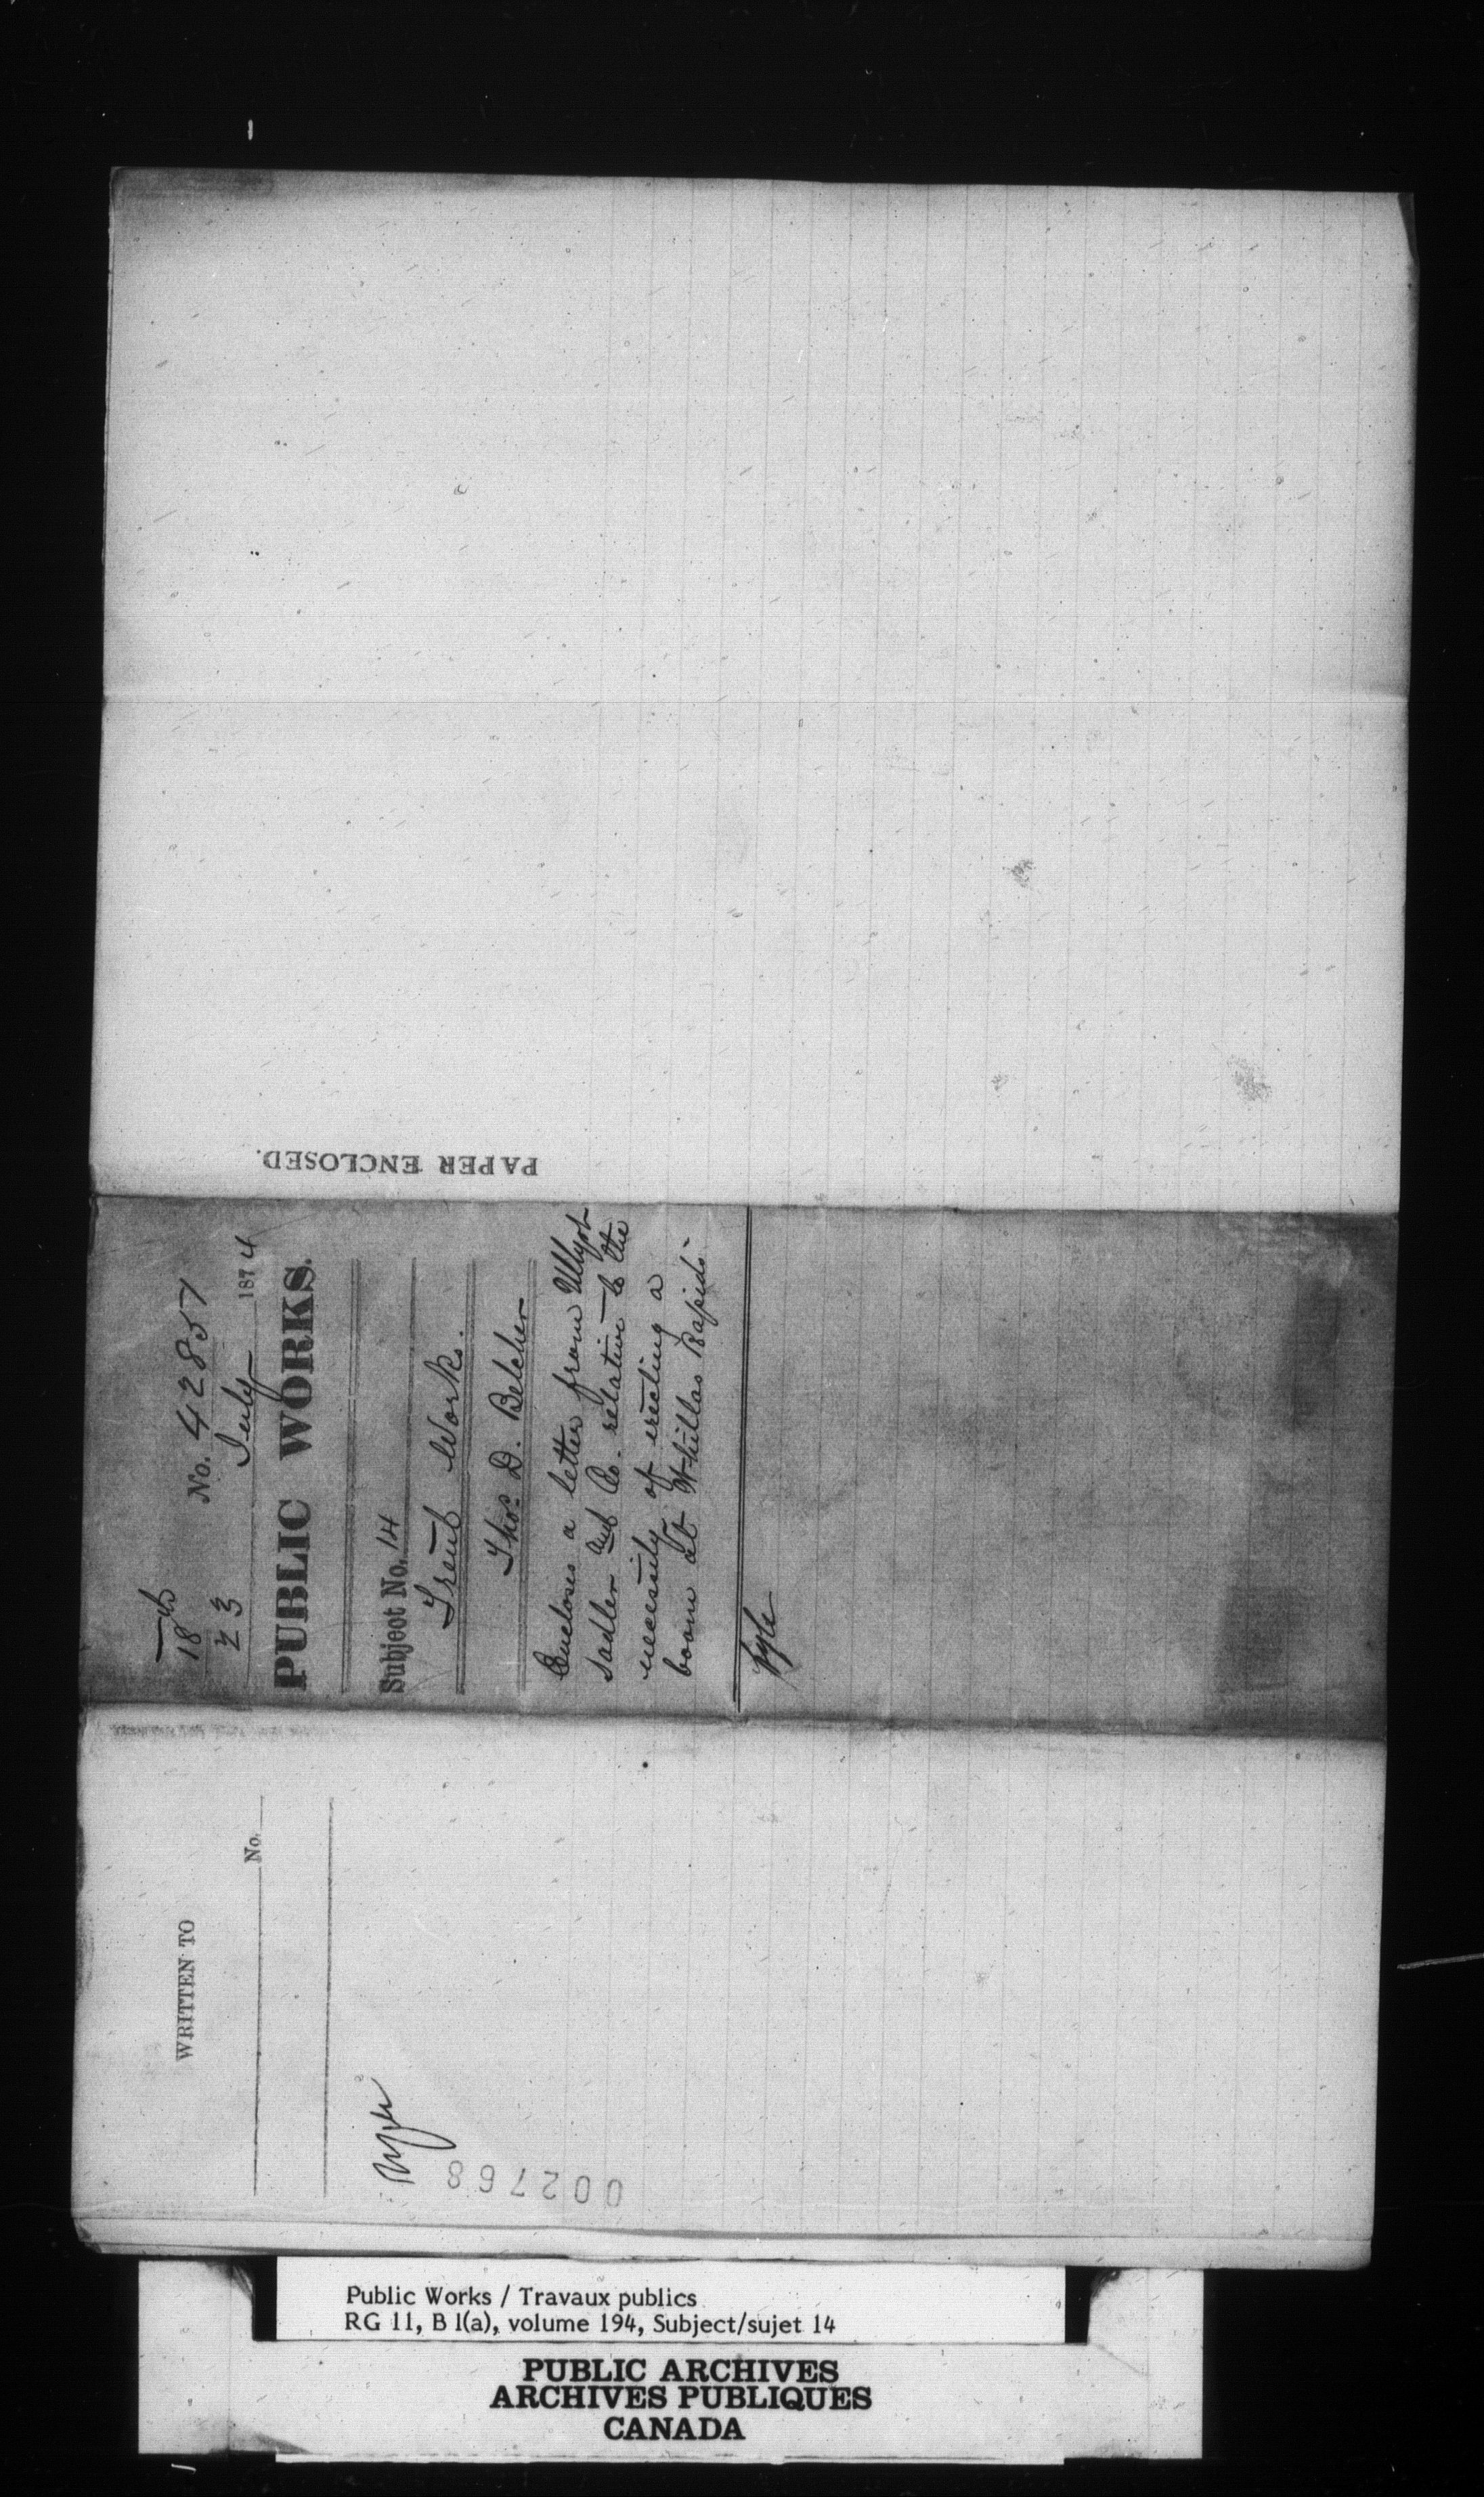 PAPER ENCLOSED.
18th No. 42857
23 July 1874
PUBLIC WORKS.
Subject No. 14
Trent Works.
Thos. D. Belcher
Encloses a letter from
Sadler and Co. relative to the
necessity of erecting a
boom at Whitlas Rapids
WRITTEN TO
No.
002768
Public Works / Travaux publics
RG 11, B 1(a), volume 194, Subject/sujet 14
PUBLIC ARCHIVES
ARCHIVES PUBLIQUES
CANADA